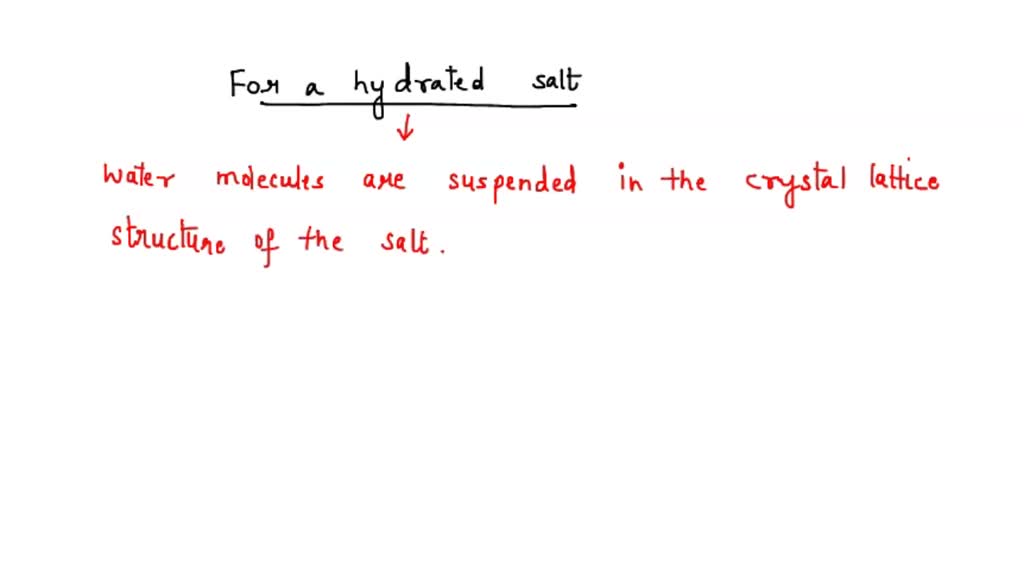 For a hydrated salt
water molecules are suspended in the crystal lattice
structure of the salt.